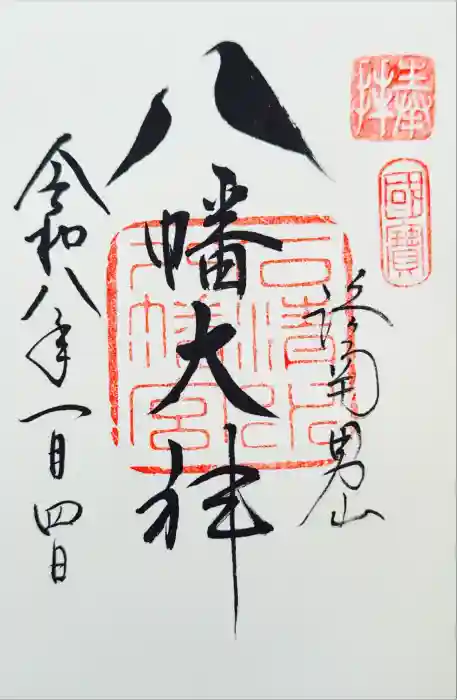 國寶
洛南男山
八幡大神
石清水
八幡宮
令和八年一月四日